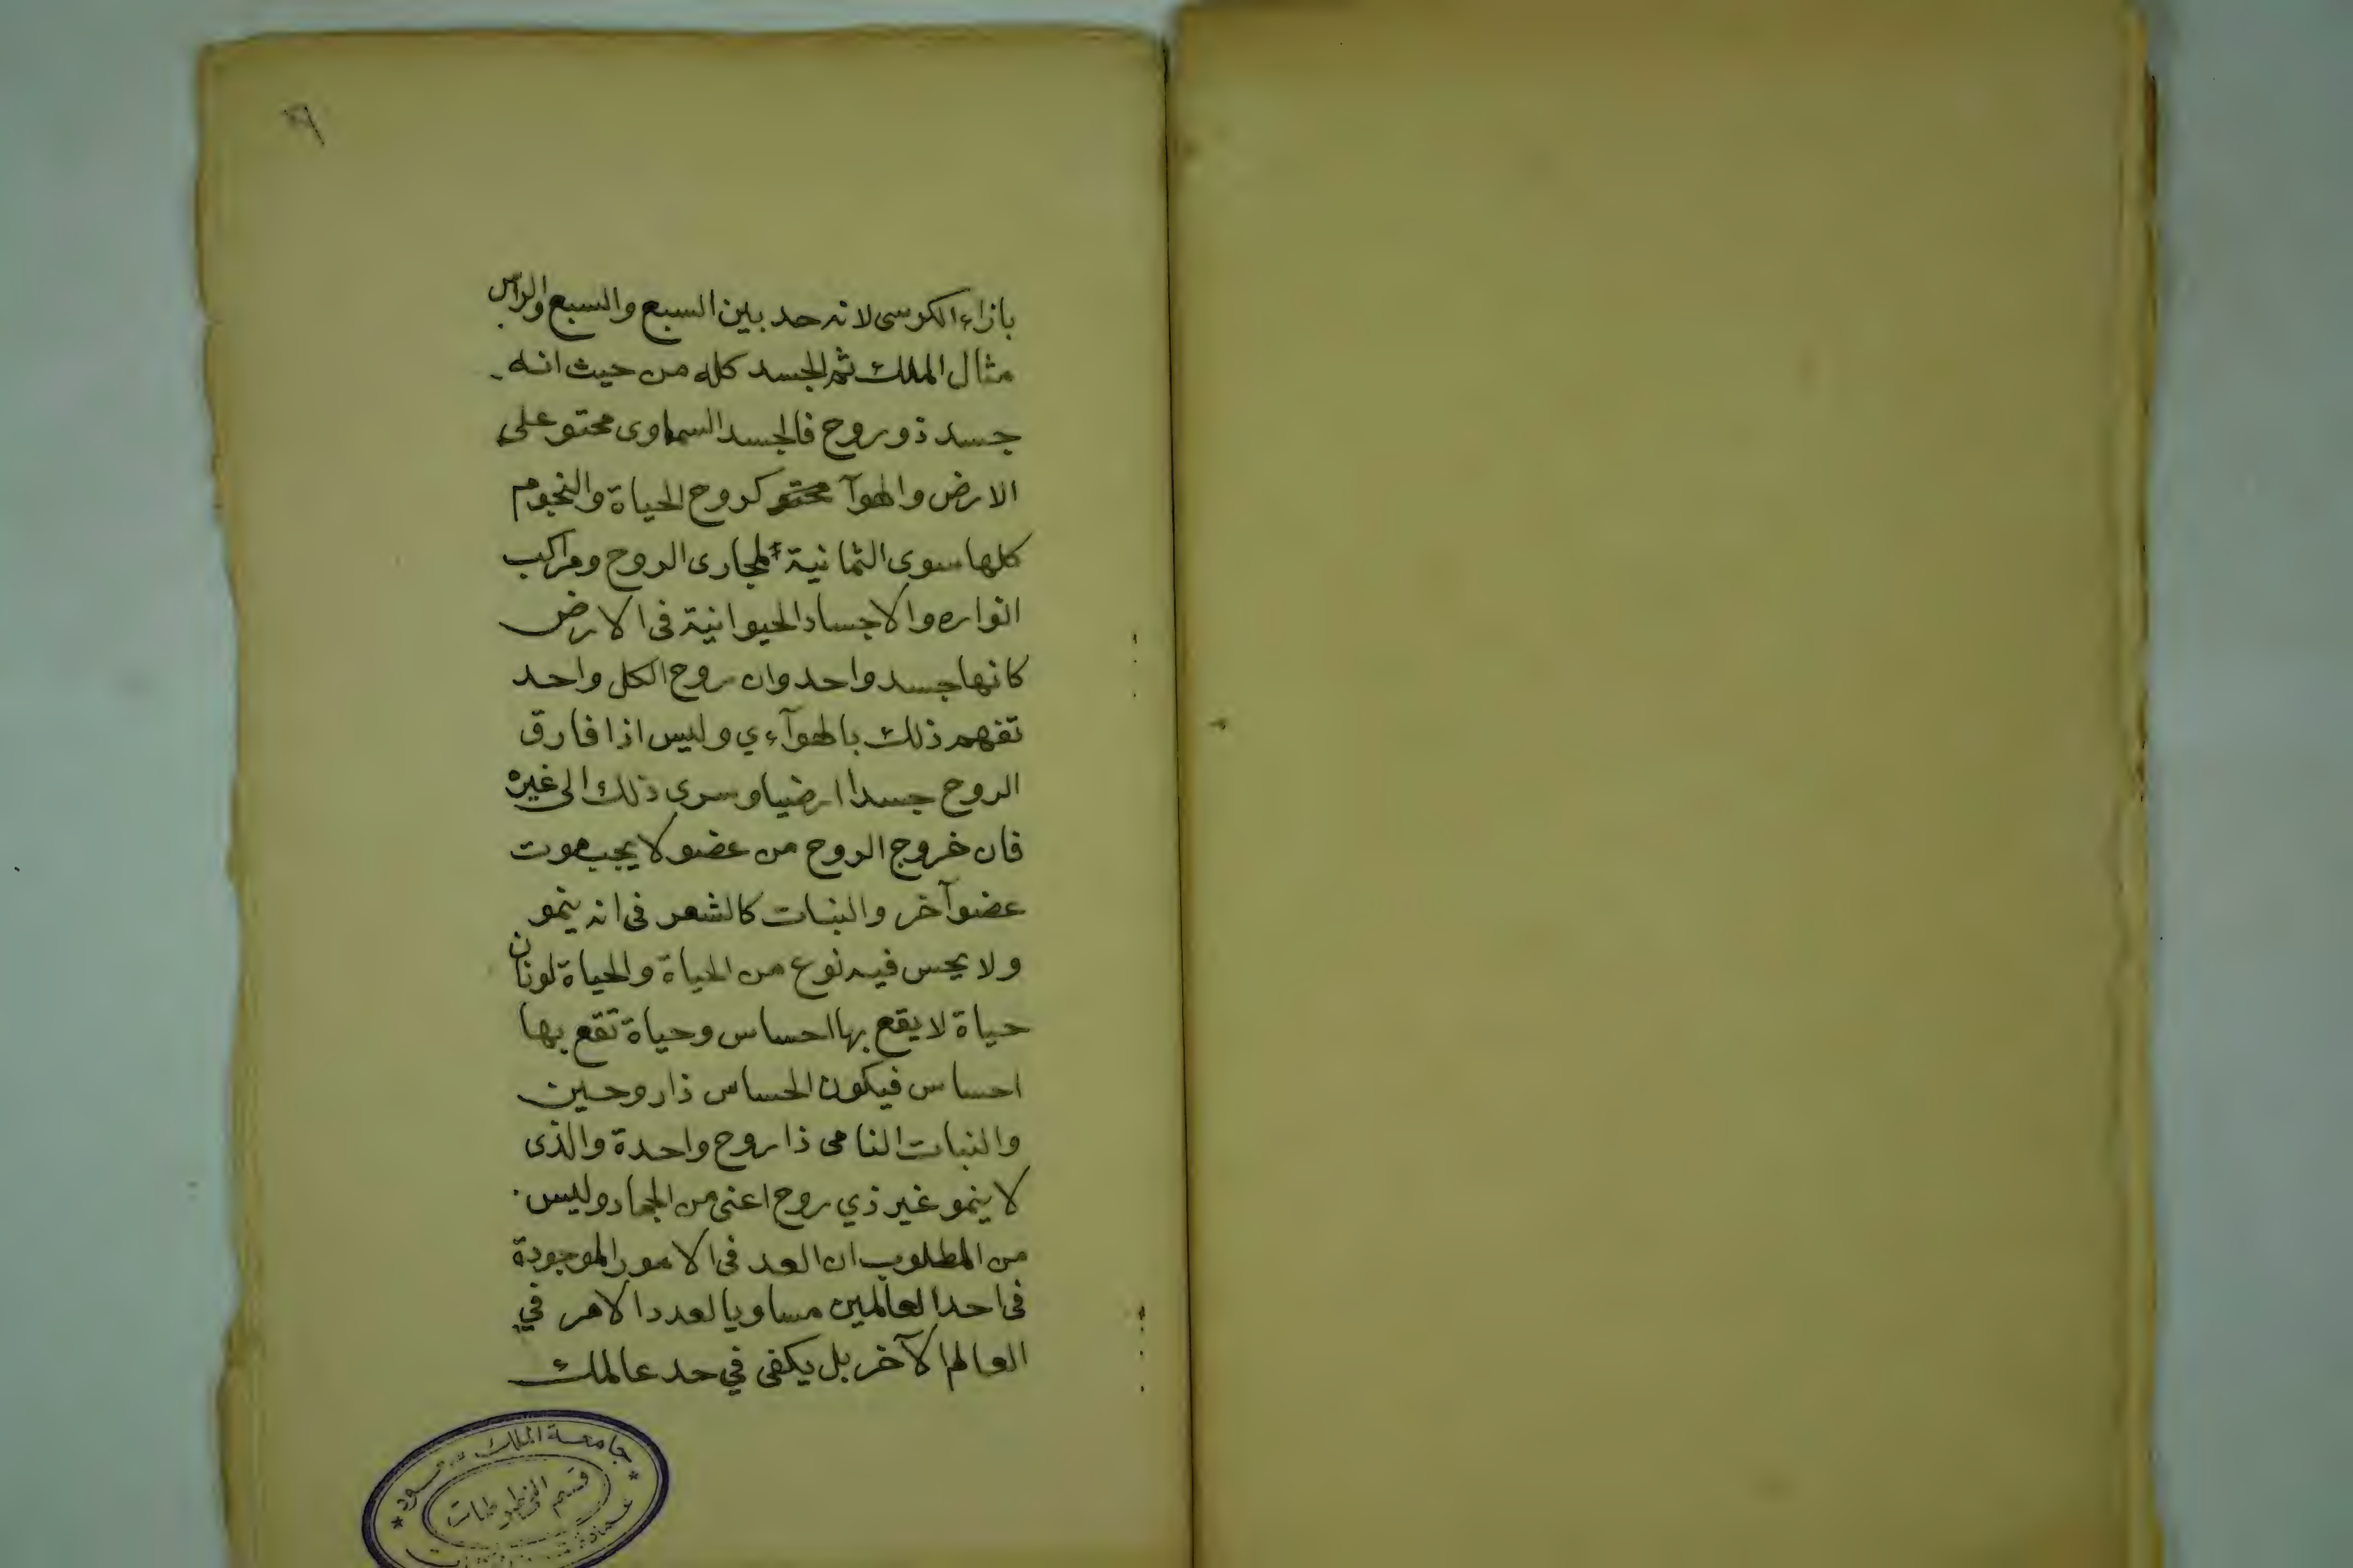 بازاء الكرسى لانه حد بين السبع والسبع والراس
مثال الملك ثم الجسد كله من حيث انه
جسد ذو روح فالجسد السماوى محتو على
الارض والهوآ كروح الحياة والنجوم
كلها سوى الثمانية لمجارى الروح ومراكب
انواره والاجساد الحيوانية فى الارض
كانها جسد واحد وان روح الكل واحد
تفهم ذلك بالهوآء ي وليس اذا فارق
الروح جسدا ارضيا وسرى ذلك الى غيره
فان خروج الروح من عضو لا يجب موت
عضو آخر والنبات كالشعر فى انه ينمو
ولا يحس فيه نوع من الحياة والحياة لونان
حياة لا يقع بها احساس وحياة تقع بها
احساس فيكون الحساس ذا روحين
والنبات النامى ذا روح واحدة والذى
لا ينمو غير ذي روح اعنى من الجماد وليس
من المطلوب ان العد فى الامور الموجودة
فى احد العالمين مساويا لعدد الامر في
العالم الآخر بل يكفى في حد عالمك
جامعة الملك سعود
قسم المخطوطات
عمادة